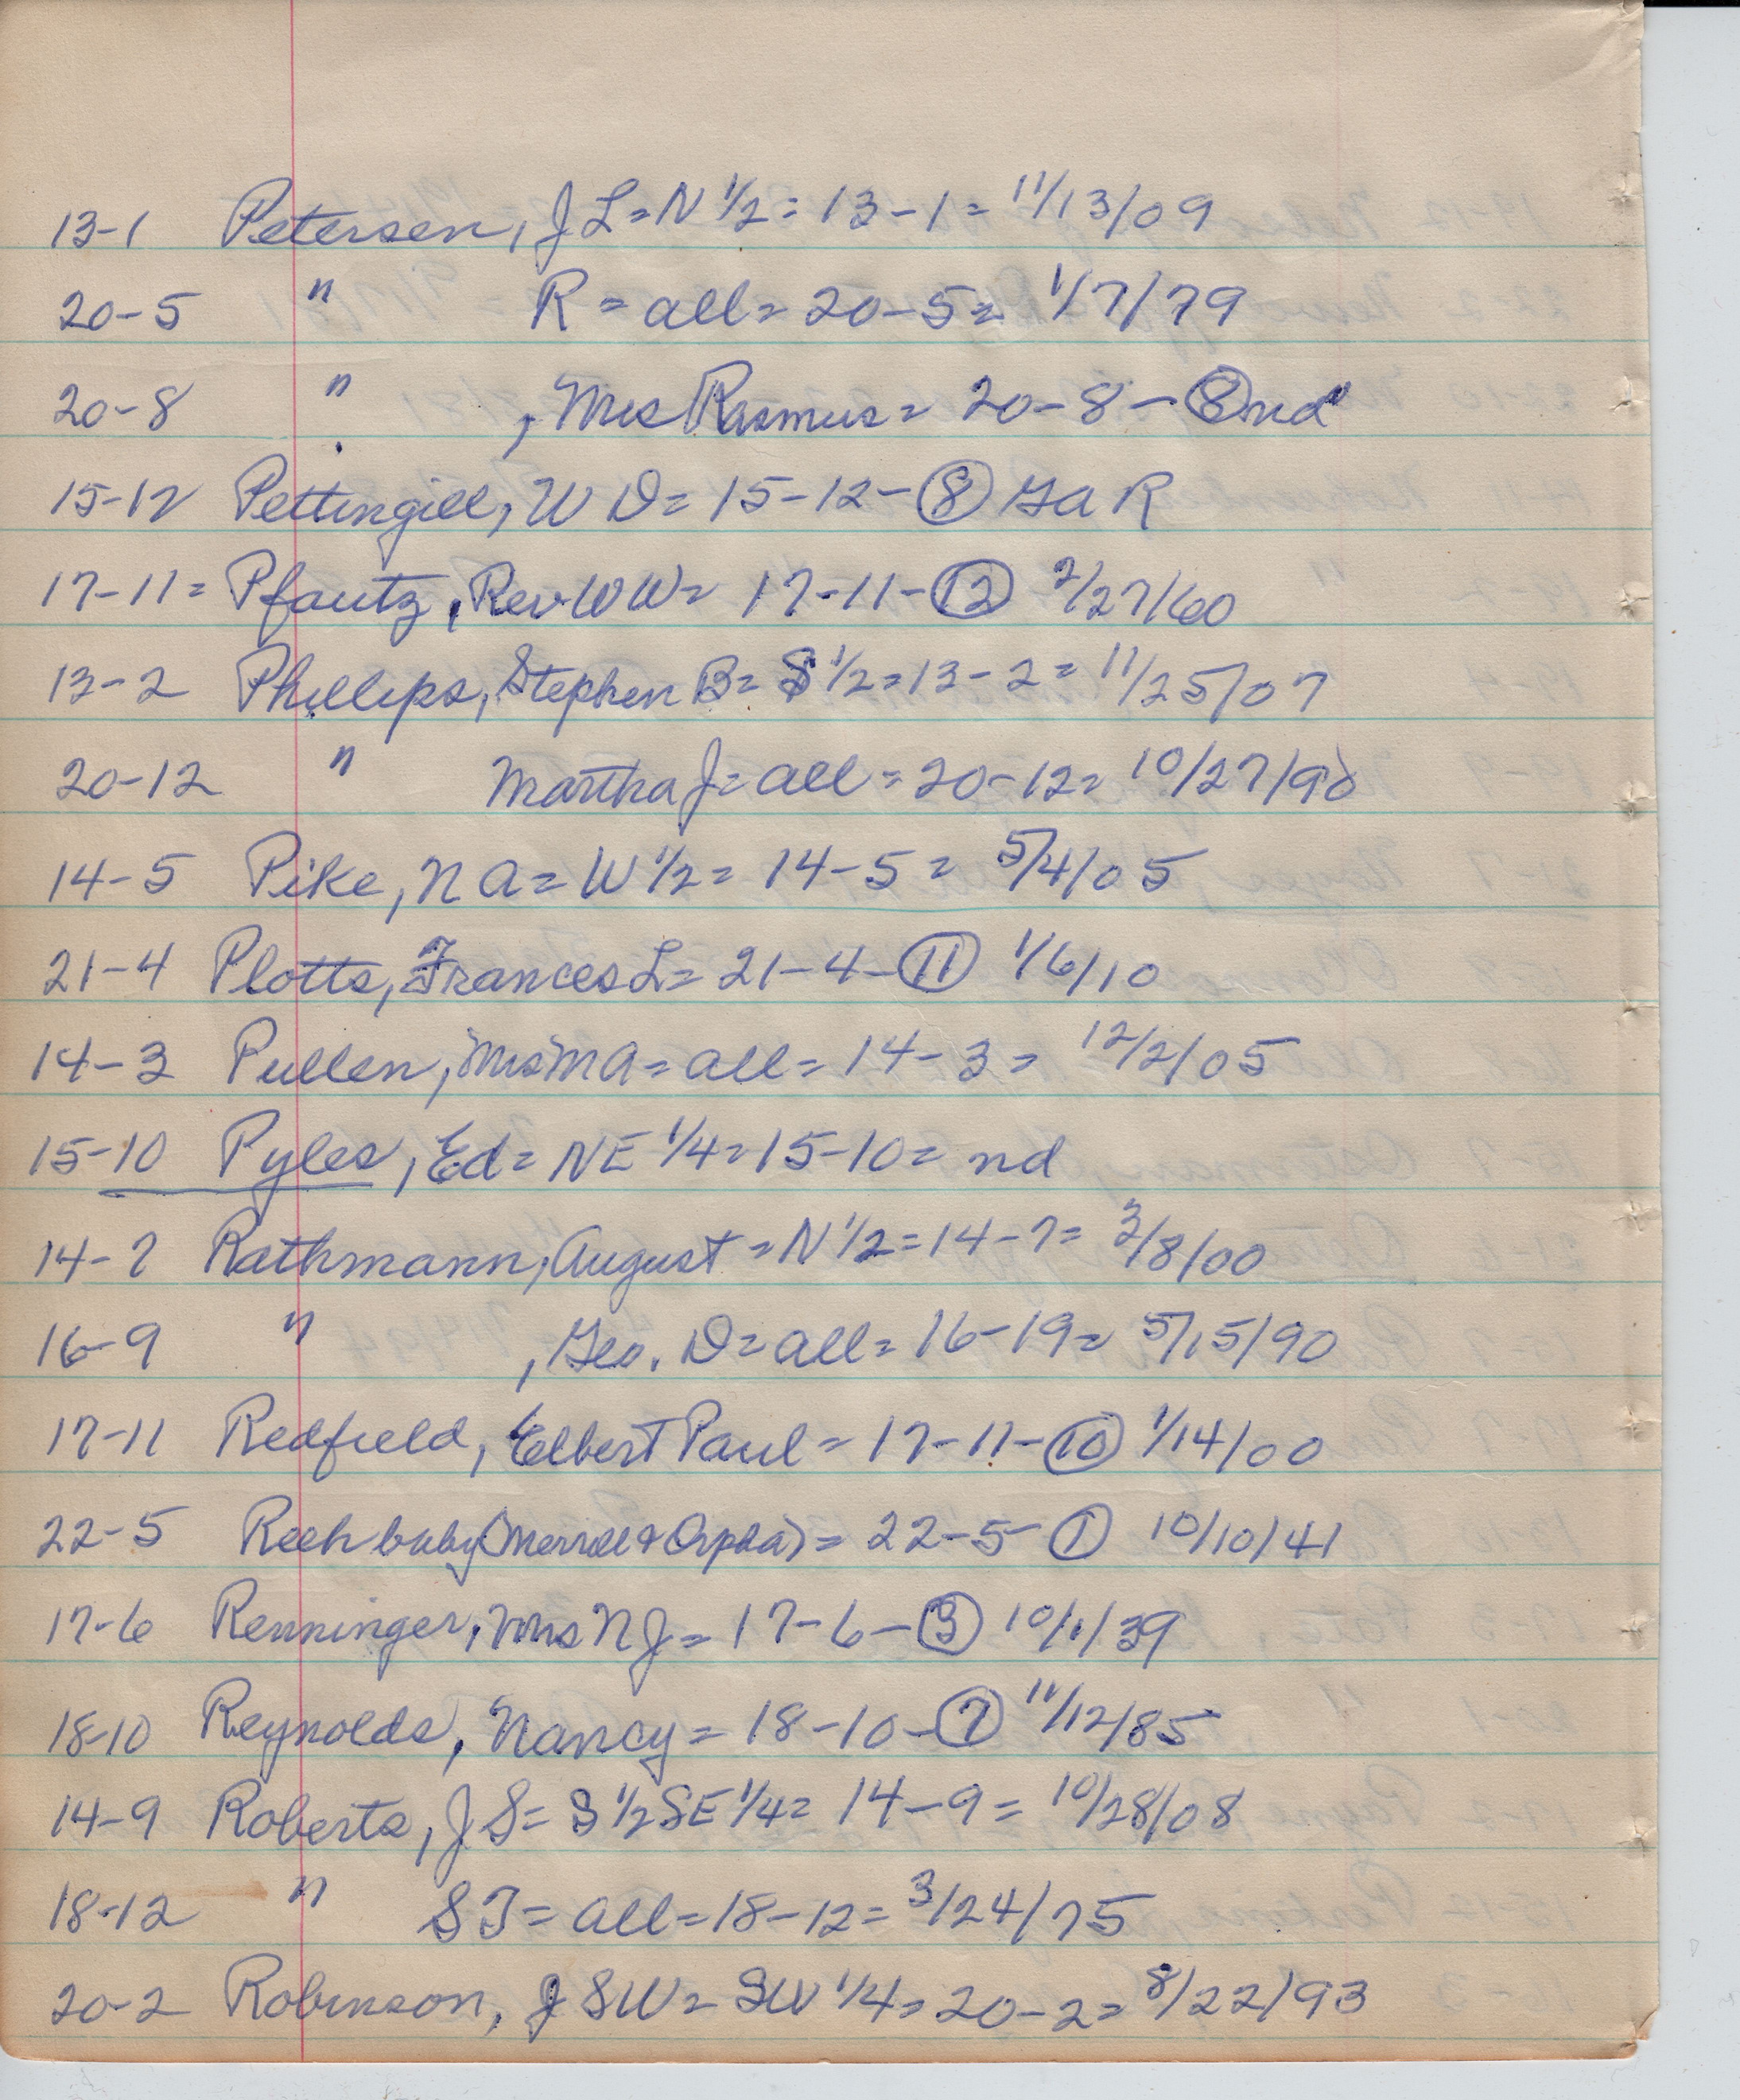 13-1 Petersen, J L = N 1/2 = 13-1 = 11/13/09
20-5 " R = all = 20-5 = 1/7/79
20-8 " , Mrs Rasmus = 20-8-(8) nd
15-12 Pettingill, W D = 15-12-(8) GAR
17-11 = Pfautz, Rev W W = 17-11-(12) 2/27/60
13-2 Phillips, Stephen B = S 1/2 = 13-2 = 11/25/07
20-12 " Martha J = all = 20-12 = 10/27/90
14-5 Pike, N A = W 1/2 = 14-5 = 5/4/05
21-4 Plotts, Frances L = 21-4-(11) 1/6/10
14-3 Pullen, "Mrs" M A = all = 14-3 = 12/2/05
15-10 Pyles, Ed = NE 1/4 = 15-10 = nd
14-7 Rathmann, August = N 1/2 = 14-7 = 3/8/00
16-9 " , Geo. D = all = 16-19 = 5/15/90
17-11 Redfield, Elbert Paul = 17-11-(10) 1/14/00
22-5 baby (Merrill & Orpha) = 22-5-(1) 10/10/41
17-6 Renninger, Mrs N J = 17-6-(3) 10/1/39
18-10 Reynolds, Nancy = 18-10-(7) 11/12/85
14-9 Roberts, J S = S 1/2 SE 1/4 = 14-9 = 10/28/08
18-12 " S T = all = 18-12 = 3/24/75
20-2 Robinson, J S W = SW 1/4 = 20-2 = 8/22/93